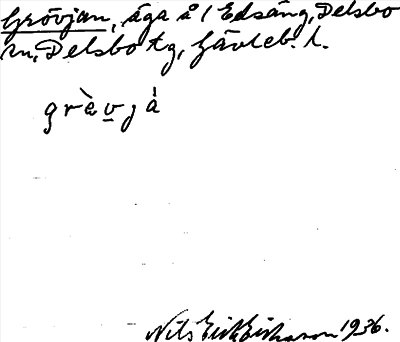 Grövjan, äga å i Edsäng, Delsbo
sn, Delsbo tg, Gävleb. l.
grèv̲já
Nils Erik Eriksson 1936.